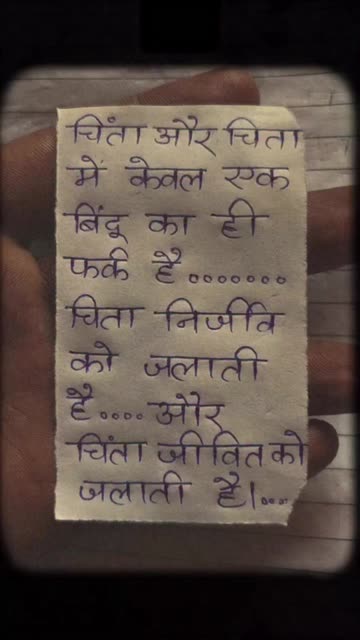 चिंता और चिता
में केवल एक
बिंदू का ही
फर्क है.......
चिता निर्जीव
को जलाती
है.... और
चिंता जीवित को
जलाती है।....